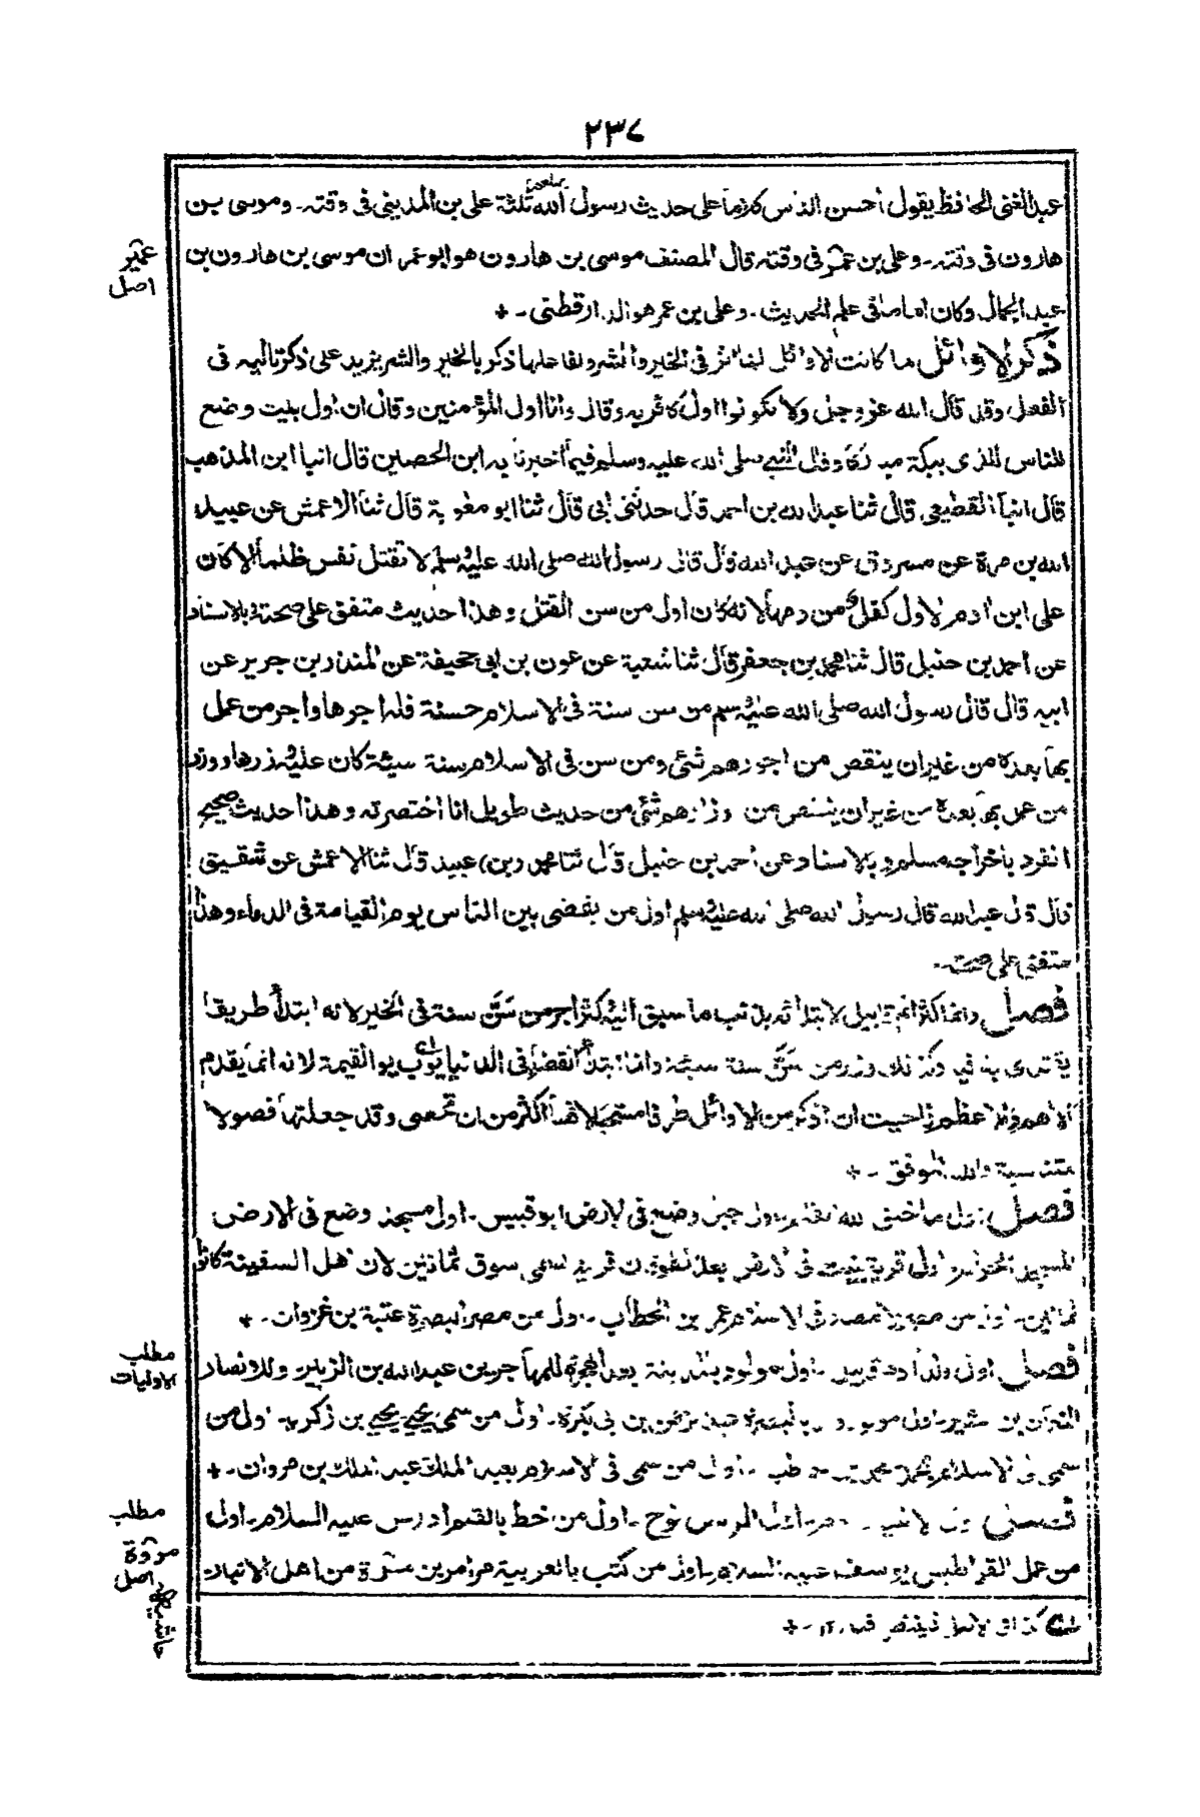 ٢٣٧
عبد الغنى الحافظ يقول أحسن الناس كلاما على حديث رسول الله صلعم ثلثة على بن المدينى فى وقته۔ وموسى بن
هارون فى وقته۔ وعلى بن عمر فى وقته قال المصنف موسى بن هارون هو ابو عمران موسى بن هارون بن
عمير
اصل
عبد الجمال وكان اماما فى علم الحديث۔ وعلى بن عمر هو الدارقطنى ۔+
ذكر الاوائل ما كانت الاوائل فى الخير والشر وفاعلها ذكر بالخير والشر يزيد على ذكر تاليه فى
الفعل وقد قال الله عز وجل ولا تكونوا اول كافر به وقال وانا اول المؤمنين وقال ان اول بيت وضع
للناس للذى ببكة مباركا وقال النبي صلى الله عليه وسلم فيما اخبرنا به ابن الحصين قال انبا ابن المذهب
قال انبأ القطيعى قال ثنا عبد الله بن احمد قال حدثنى ابى قال ثنا ابو معوية قال ثنا الاعمش عن عبيد
الله بن مرة عن مسروق عن عبد الله قال قال رسول الله صلى الله عليه وسلم لا تقتل نفس ظلما الا كان
على ابن ادم الاول كفل من دمها لانه كان اول من سن القتل وهذا حديث متفق على صحته وبالاسناد
عن احمد بن حنبل قال ثنا محمد بن جعفر قال ثنا شعبة عن عون بن ابى جحيفة عن المنذر بن جرير عن
ابيه قال قال رسول الله صلى الله عليه وسلم من سن سنة فى الاسلام حسنة فله اجرها واجر من عمل
بها بعده من غير ان ينقص من اجورهم شئ ومن سن فى الاسلام سنة سيئة كان عليه وزرها ووزر
من عمل بها بعده من غير ان ينتقص من اوزارهم شئ من حديث طويل انا اختصرته وهذا حديث صحيح
انفرد باخراجه مسلم وبالاسناد عن احمد بن حنبل قال ثنا محمد (بن) عبيد قال ثنا الاعمش عن شقيق
قال قال عبد الله قال رسول الله صلى الله عليه وسلم اول من يقضى بين الناس يوم القيامة فى الدماء وهذا
متفق على صحته۔
فصل وانما اكثر اثم قابيل لابتدائه بذنب ما سبق اليه كثر اجر من سن سنة فى الخير لانه ابتدأ طريقا
يقتدى به فيه وكذلك وزر من سن سنة سيئة وانما ابتدأ القضاء فى الدنيا يوم القيمة لانه انما يقدم
الاهم فاحببت ان اذكر من الاوائل طرفا فانها اكثر من ان تحصى وقد جعلتها فصولا
متناسبة والله الموفق ۔+
فصل اول ما خلق الله القلم۔ اول جبل وضع فى الارض ابو قبيس۔ اول مسجد وضع فى الارض
المسجد الحرام اول قرية بنيت فى الارض بعد الطوفان قرية تسمى سوق ثمانين لان اهل السفينة كانوا
ثمانين۔ اول من مصر الامصار فى الاسلام عمر بن الخطاب ۔اول من مصر البصرة عتبة بن غزوان۔+
مطلب
الاوليات
فصل اول ولد ادم قابيل ۔اول مولود بالمدينة بعد الهجرة للمهاجرين عبد الله بن الزبير وللانصار
النعمان بن بشير۔ اول مولود ولد بالبصرة عبد الرحمن بن ابى بكرة۔ اول من سمى يحيى يحيى بن زكريا۔ اول من
سمى فى الاسلام محمد محمد بن حاطب ۔اول من سمى فى الاسلام بعبد الملك عبد الملك بن مروان۔+
مطلب
فصل اول الانبياء ادم۔ اول المرسلين نوح ۔اول من خط بالقلم ادريس عليه السلام۔ اول
من عمل القراطيس يوسف عليه السلام۔ اول من كتب بالعربية مرامر بن مرة من اهل الانبار
مروة
اصل
حاشيه
كذا فى الاصل ١٢۔+